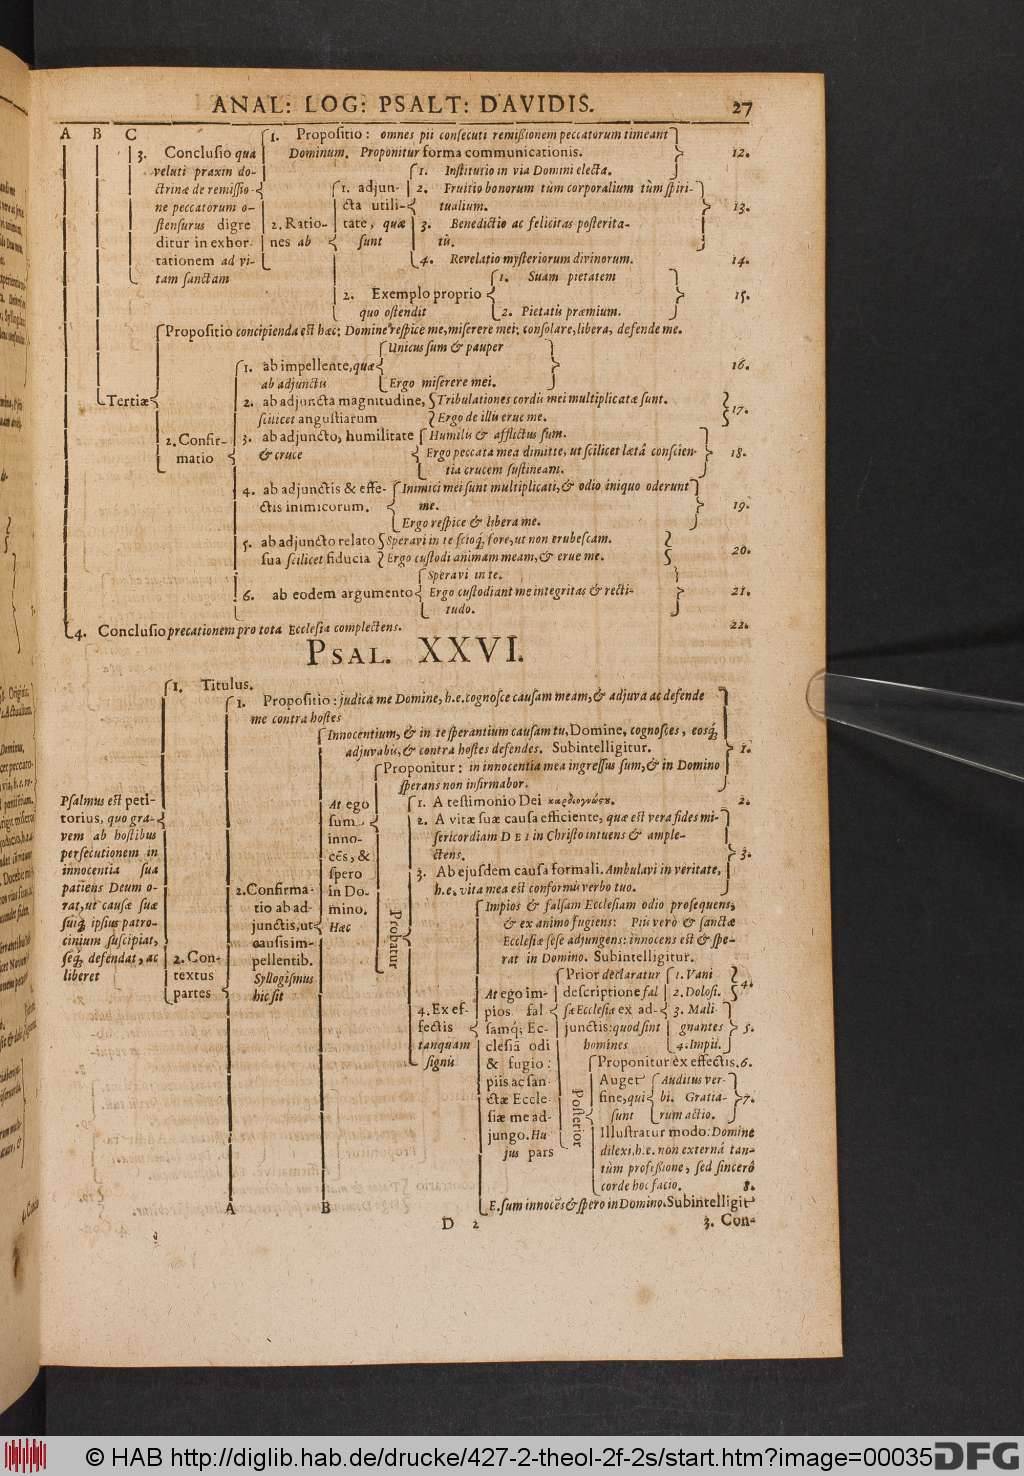 ANAL: LOG: PSALT: DAVIDIS. 27
A B C
3. Conclusio qua
veluti praxin do-
ctrinæ de remissio-
ne peccatorum o-
stensurus digre
ditur in exhor
tationem ad vi-
tam sanctam
1. Propositio: omnes pii consecuti remißionem peccatorum timeant
Dominum. Proponitur forma communicationis. 12.
2. Ratio-
nes ab
1. adjun-
cta utili-
tate, quæ
sunt
1. Institutio in via Domini electa.
2. Fruitio bonorum tùm corporalium tùm spiri-
tualium. 13.
3. Benedictio ac felicitas posterita-
tis.
4. Revelatio mysteriorum divinorum. 14.
2. Exemplo proprio
quo ostendit
1. Suam pietatem
2. Pietatis præmium. 15.
Tertiæ
Propositio concipienda est hæc: Domine respice me, miserere mei: consolare, libera, defende me.
2. Confir-
matio
1. ab impellente, quæ
ab adjunctis
Unicus sum & pauper
Ergo miserere mei. 16.
2. ab adjuncta magnitudine,
scilicet angustiarum
Tribulationes cordis mei multiplicatæ sunt.
Ergo de illis erue me. 17.
3. ab adjuncto, humilitate
& cruce
Humilis & afflictus sum.
Ergo peccata mea dimitte, ut scilicet lætâ conscien-
tia crucem sustineam. 18.
4. ab adjunctis & effe-
ctis inimicorum.
Inimici mei sunt multiplicati, & odio iniquo oderunt
me.
Ergo respice & libera me. 19.
5. ab adjuncto relato
sua scilicet fiducia
Speravi in te scioq́, fore, ut non erubescam.
Ergo custodi animam meam, & erue me. 20.
6. ab eodem argumento
Speravi in te.
Ergo custodiant me integritas & recti-
tudo. 21.
4. Conclusio precationem pro tota Ecclesia complectens. 22.
PSAL. XXVI.
Psalmus est peti-
torius, quo gra-
vem ab hostibus
persecutionem in
innocentia sua
patiens Deum o-
rat, ut causæ suæ
suiq́ ipsius patro-
cinium suscipiat,
seq́, defendat, ac
liberet
1. Titulus.
2. Con-
textus
partes
1. Propositio: judica me Domine, h.e. cognosce causam meam, & adjuva ac defende
me contra hostes
2. Confirma-
tio ab ad-
junctis, ut
causis im-
pellentib.
Syllogismus
hic sit
Innocentium, & in te sperantium causam tu, Domine, cognosces, eosq́
adjuvabis, & contra hostes defendes. Subintelligitur. 1.
At ego
sum
inno-
cẽs, &
spero
in Do-
mino.
Hæc
Proponitur: in innocentia mea ingressus sum, & in Domino
sperans non infirmabor.
Probatur
1. A testimonio Dei καρδιογνώστε. 2.
2. A vitæ suæ causa efficiente, quæ est vera fides mi-
sericordiam DEI in Christo intuens & ample-
ctens. 3.
3. Ab ejusdem causa formali. Ambulavi in veritate,
h.e. vita mea est conformis verbo tuo.
4. Ex ef-
fectis
tanquam
signis
Impios & falsam Ecclesiam odio prosequens,
& ex animo fugiens: Piis verò & sanctæ
Ecclesiæ sese adjungens: innocens est & spe-
rat in Domino. Subintelligitur.
At ego im-
pios fal
samq́; Ec-
clesiã odi
& fugio:
piis ac san-
ctæ Eccle-
siæ me ad-
jungo. Hu
jus pars
Prior declaratur
descriptione fal
sæ Ecclesiæ ex ad-
junctis: quod sint
homines
1. Vani
2. Dolosi. 4.
3. Mali
gnantes 5.
4. Impii.
Posterior
Proponitur ex effectis. 6.
Auget
fine, qui
sunt
Auditus ver-
bi. Gratia-
rum actio. 7.
Illustratur modo: Domine
dilexi, h.e. non externâ tan-
tùm profeßione, sed sincerô
corde hoc facio. 8.
E. sum innocẽs & spero in Domino. Subintelligit
A B
D 2 3. Con-
© HAB http://diglib.hab.de/drucke/427-2-theol-2f-2s/start.htm?image=00035
DFG